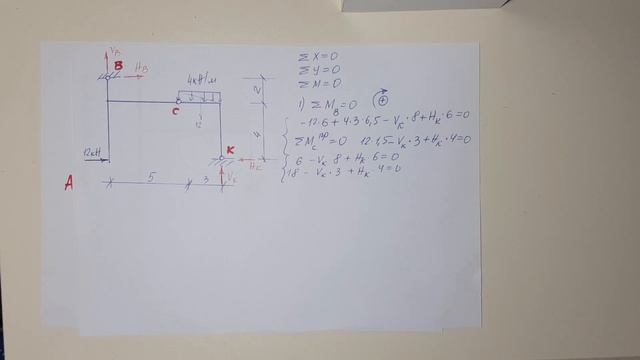 V_B
B
H_B
4кН/м
2
C
12
4
12кН
K
H_K
V_K
A
5
3
ΣX=0
ΣY=0
ΣM=0
1) ΣM_B=0 (+)
-12·6+4·3·6,5-V_K·8+H_K·6=0
ΣM_C^пр=0 12·1,5-V_K·3+H_K·4=0
6-V_K·8+H_K·6=0
18-V_K·3+H_K·4=0